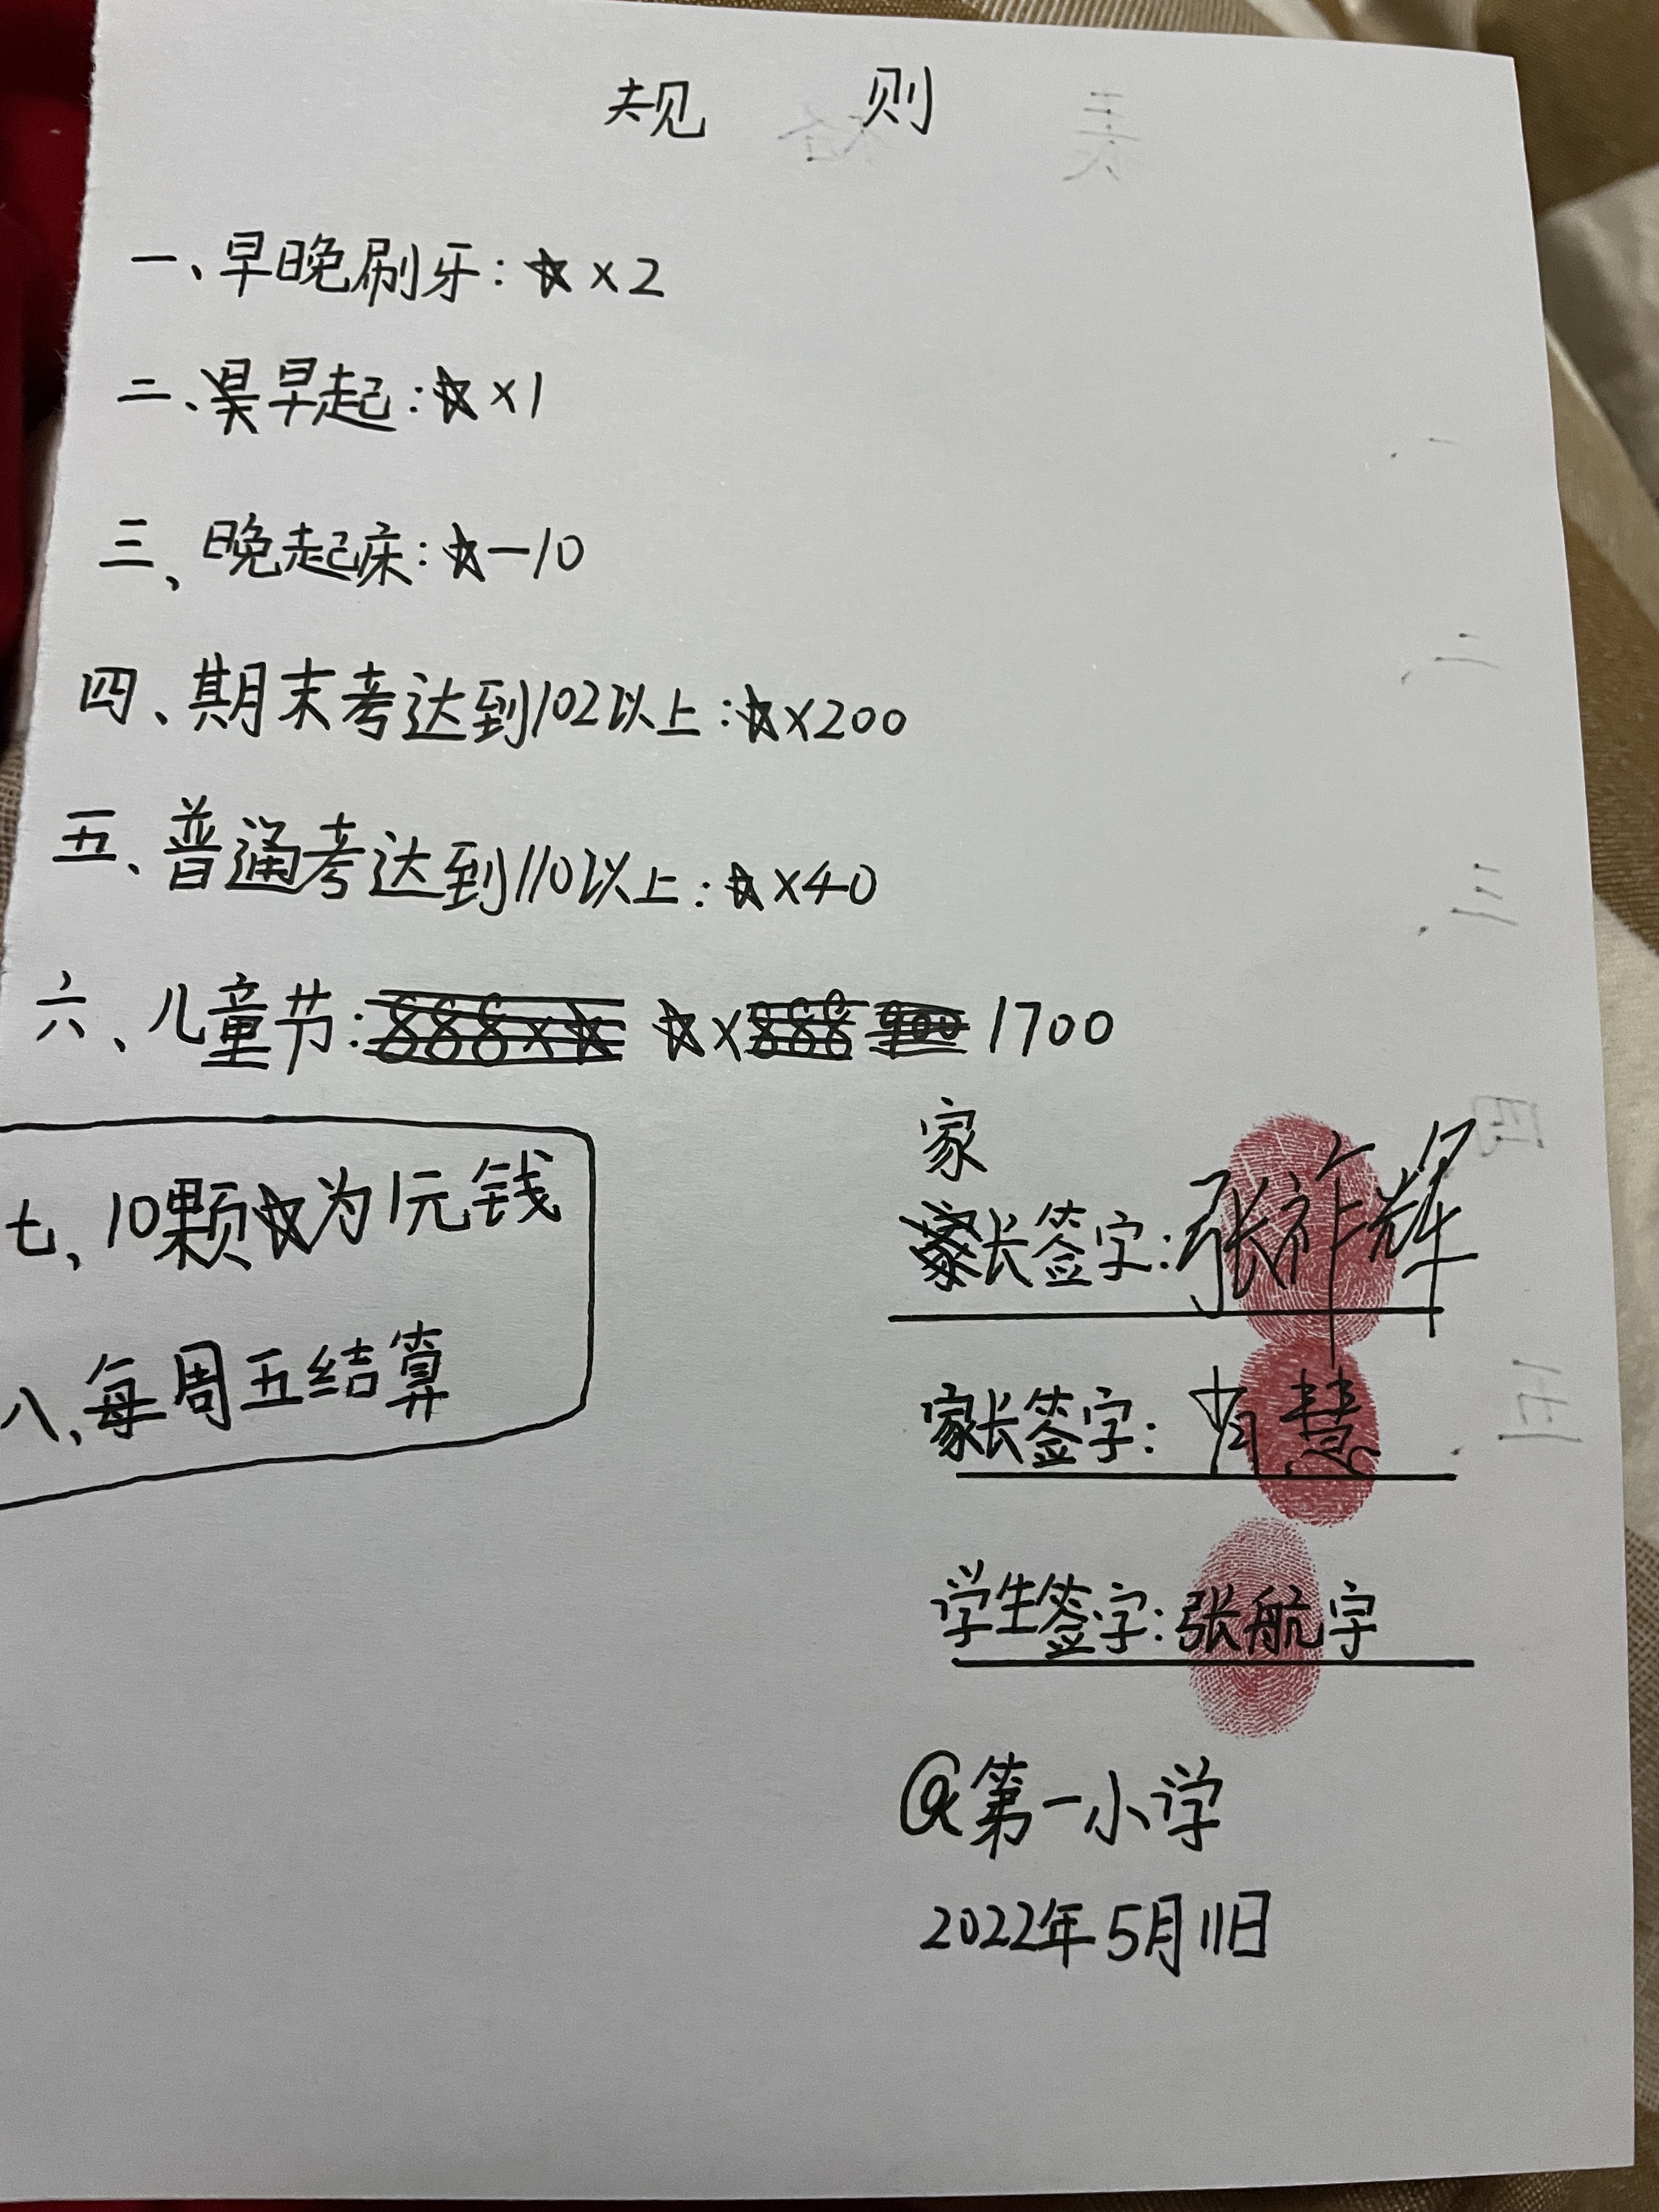 规 则
一、早晚刷牙：☆×2
二、早起：☆×1
三、晚起床：☆-10
四、期末考达到102以上：☆×200
五、普通考达到110以上：☆×40
六、儿童节：☆×1700
七、10颗☆为1元钱
八、每周五结算
家
长签字：张祚辉
家长签字：肖慧
学生签字：张航宇
@第一小学
2022年5月11日